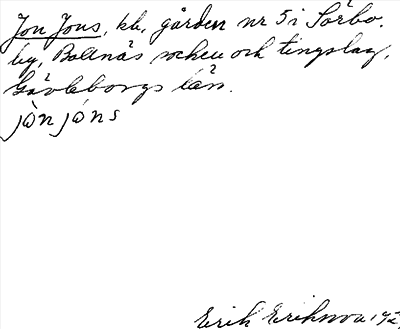 Jon Jons, kb, gården nr 5 i Sörbo.
by, Bollnäs socken och tingslag,
Gävleborgs län.
jòn jóns
Erik Eriksson